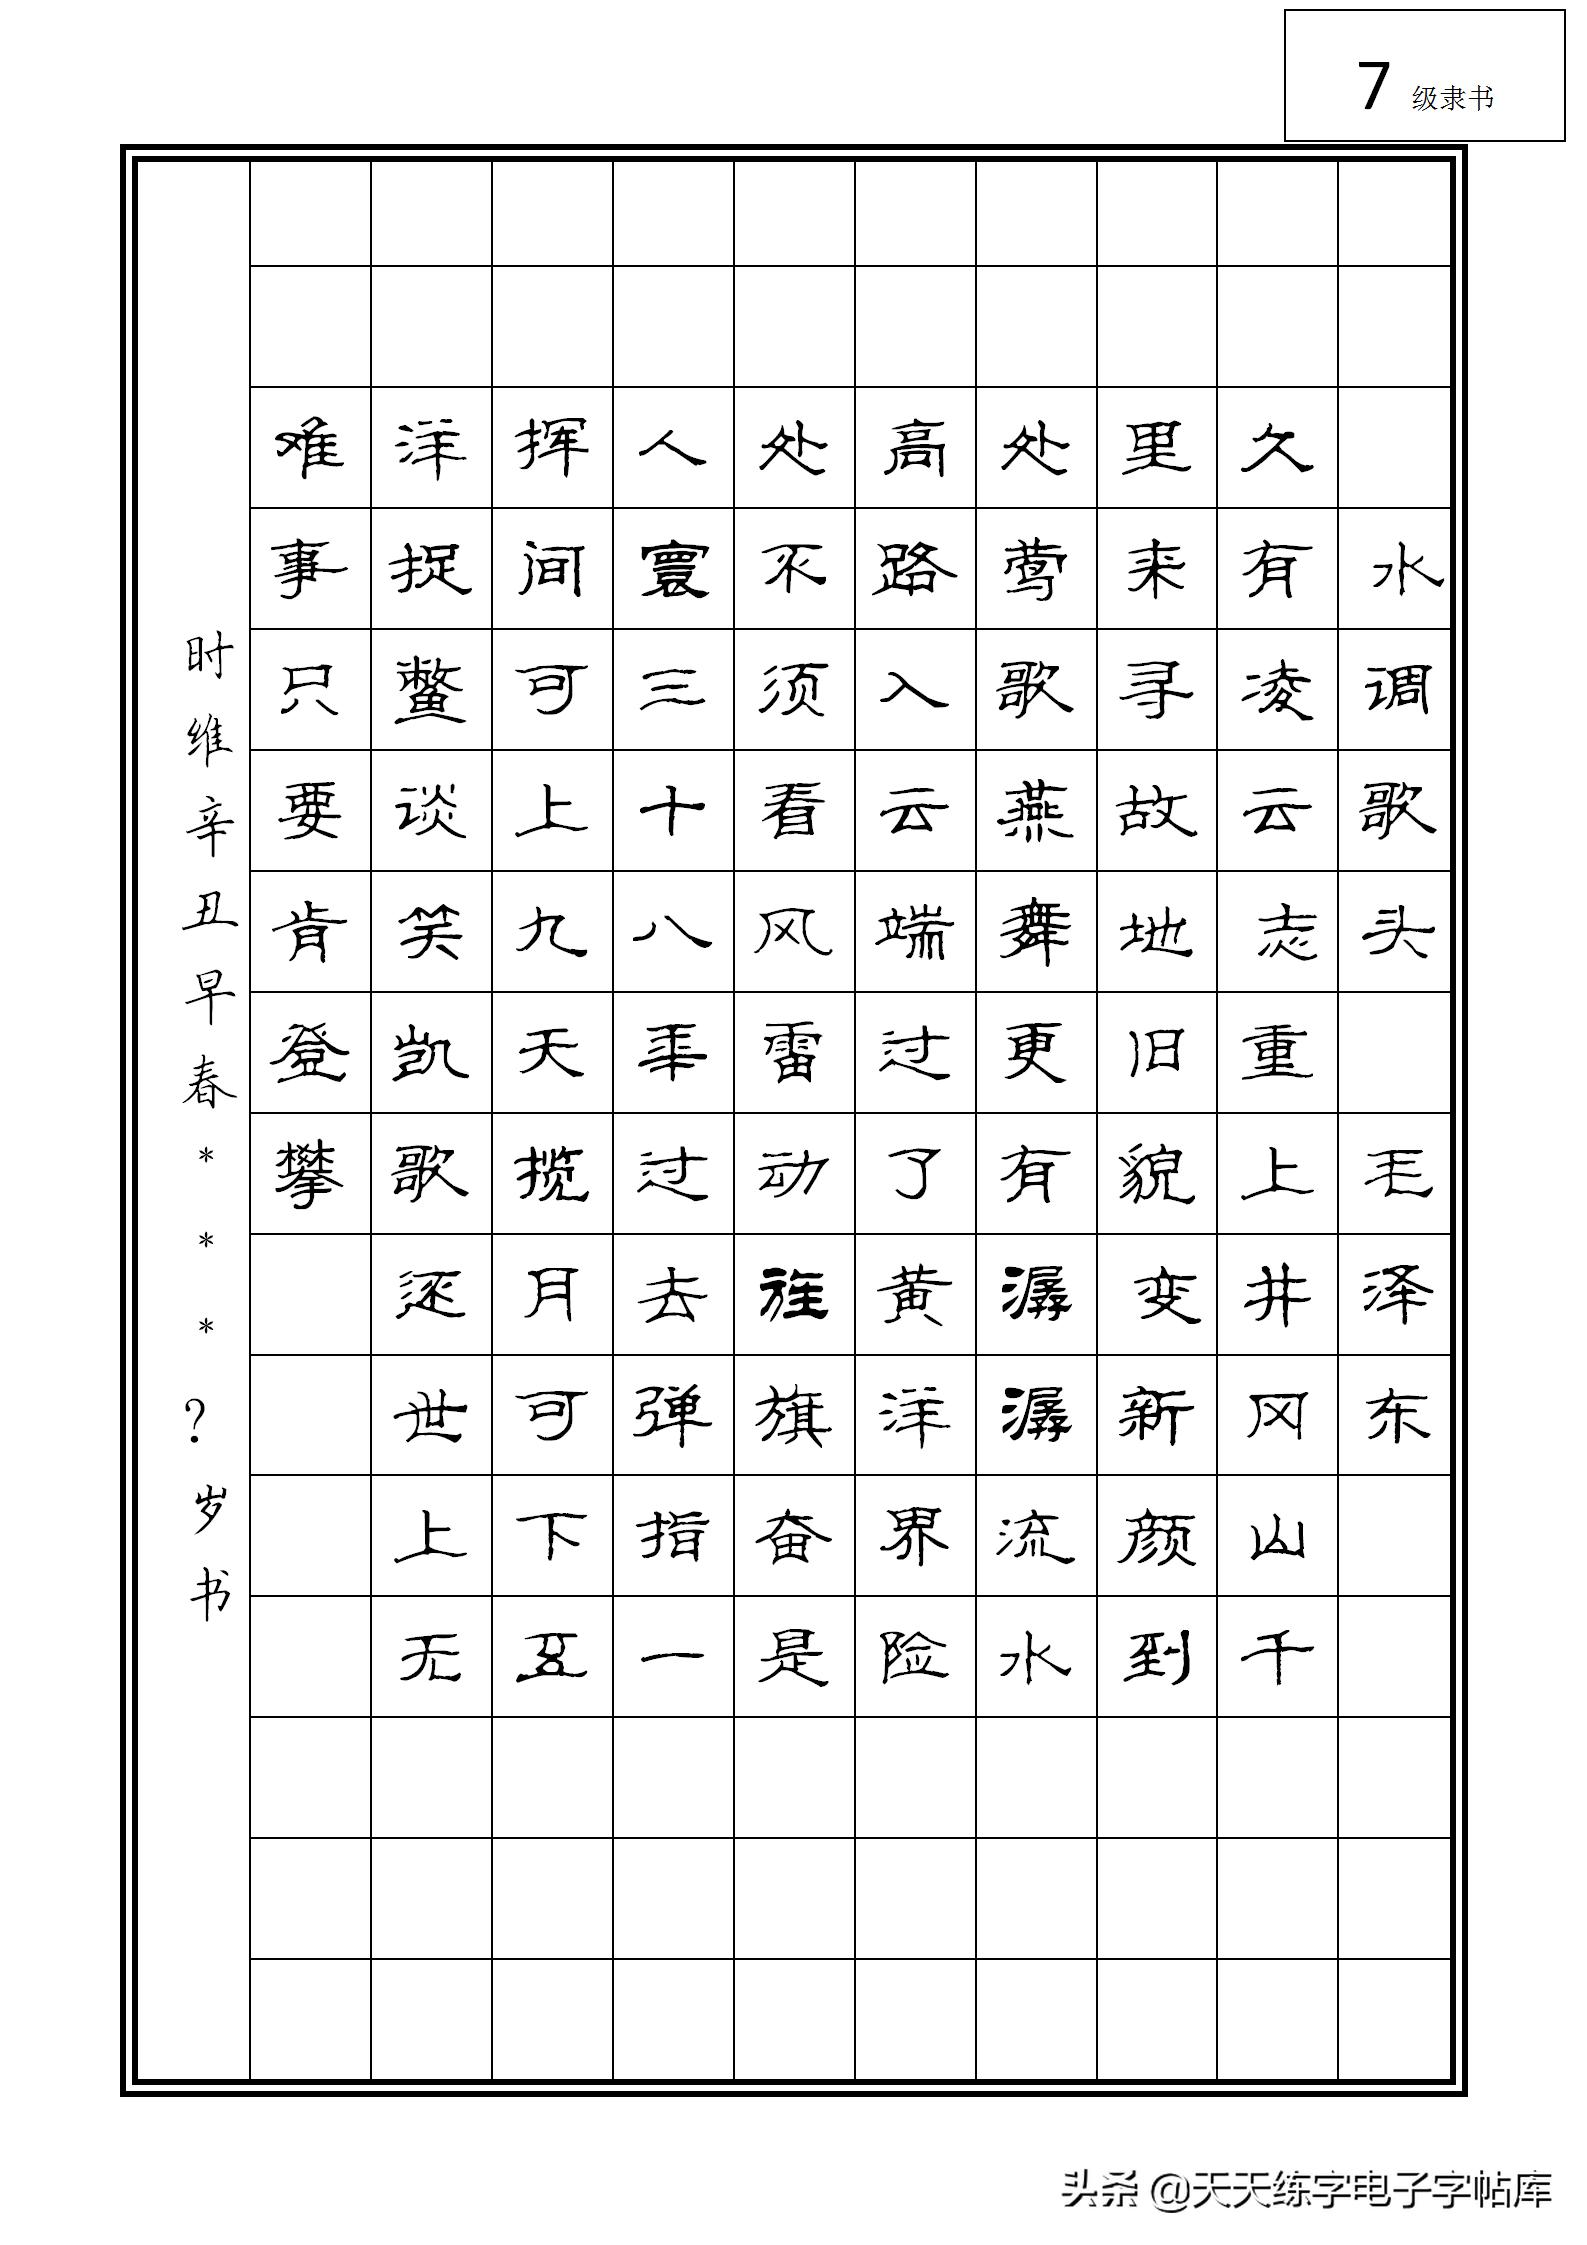 7 级隶书
水调歌头 毛泽东
久有凌云志重上井冈山千
里来寻故地旧貌变新颜到
处莺歌燕舞更有潺潺流水
高路入云端过了黄洋界险
处不须看风雷动旌旗奋是
人寰三十八年过去弹指一
挥间可上九天揽月可下五
洋捉鳖谈笑凯歌还世上无
难事只要肯登攀
时维辛丑早春***?岁书
头条 @天天练字电子字帖库